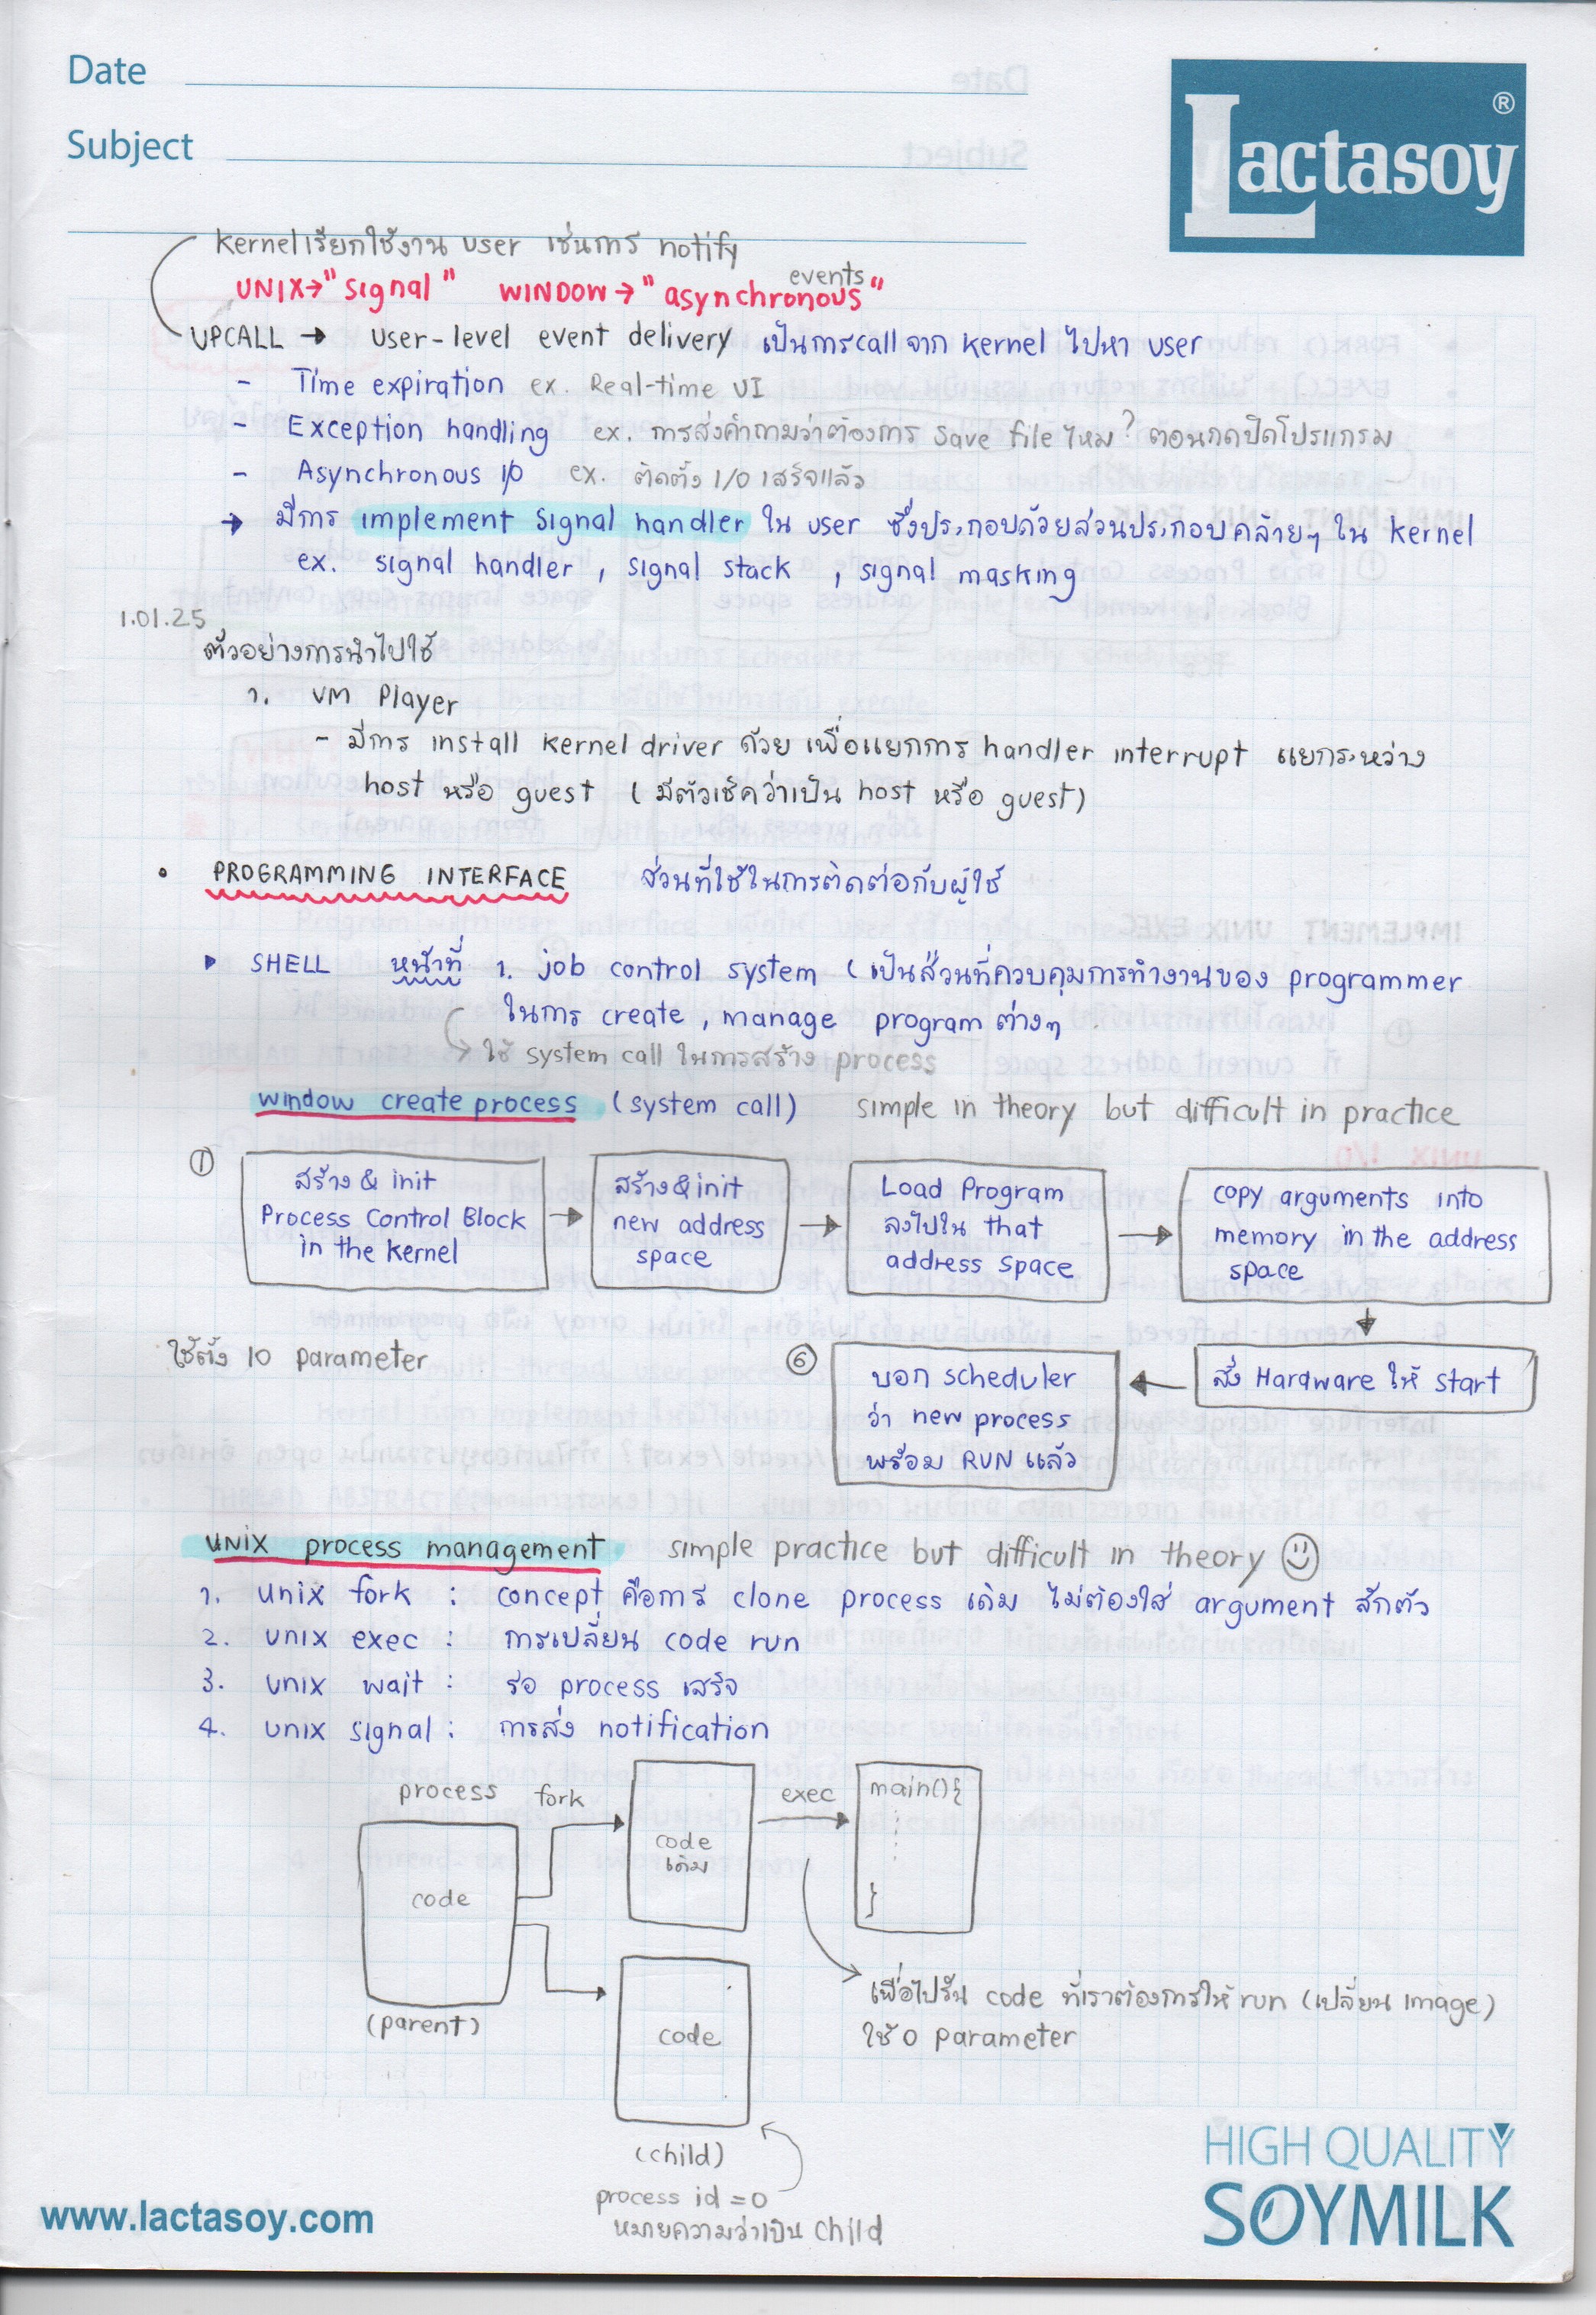 Date
Subject
Lactasoy ®
kernel เรียกใช้งาน user เช่นการ notify
UNIX→"signal" WINDOW→"asynchronous events"
UPCALL → User-level event delivery เป็นการ call จาก kernel ไปหา user
- Time expiration ex. Real-time UI
- Exception handling ex. การส่งคำถามว่าต้องการ save file ไหม? ตอนกดปิดโปรแกรม
- Asynchronous I/O ex. ติดตั้ง I/O เสร็จแล้ว
→ มีการ implement signal handler ใน user ซึ่งประกอบด้วยส่วนประกอบคล้ายๆ ใน kernel
ex. signal handler, signal stack, signal masking
1.01.25
ตัวอย่างการนำไปใช้
1. VM Player
- มีการ install kernel driver ด้วย เพื่อแยกการ handler interrupt แยกระหว่าง
host หรือ guest (มีตัวเช็คว่าเป็น host หรือ guest)
• PROGRAMMING INTERFACE ส่วนที่ใช้ในการติดต่อกับผู้ใช้
▸ SHELL หน้าที่ 1. job control system (เป็นส่วนที่ควบคุมการทำงานของ programmer
ในการ create, manage program ต่างๆ
↳ ใช้ system call ในการสร้าง process
window create process (system call) simple in theory but difficult in practice
①
สร้าง & init
Process Control Block
in the kernel
→
สร้าง & init
new address
space
→
Load Program
ลงไปใน that
address space
→
copy arguments into
memory in the address
space
↓
สั่ง Hardware ให้ start
←
⑥
บอก scheduler
ว่า new process
พร้อม RUN แล้ว
ใช้ตั้ง 10 parameter
UNIX process management simple practice but difficult in theory ☺
1. unix fork : concept คือการ clone process เดิม ไม่ต้องใส่ argument สักตัว
2. unix exec : การเปลี่ยน code run
3. unix wait : รอ process เสร็จ
4. unix signal : การส่ง notification
process fork
code
(parent)
code
เดิม
exec
main(){
}
เพื่อไปรัน code ที่เราต้องการให้ run (เปลี่ยน image)
ใช้ 0 parameter
code
(child)
process id = 0
หมายความว่าเป็น child
www.lactasoy.com
HIGH QUALITY
SOYMILK